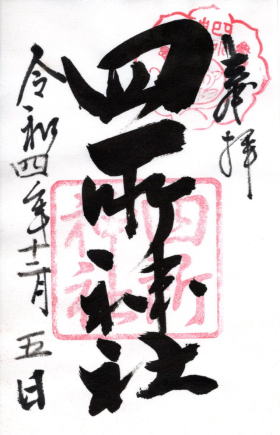 奉拝
四所神社
令和四年十二月五日
四所
神社